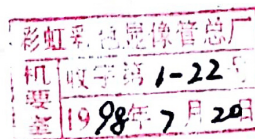 彩虹彩色显像管总厂
机要室
收字第1-22号
1998年7月20日